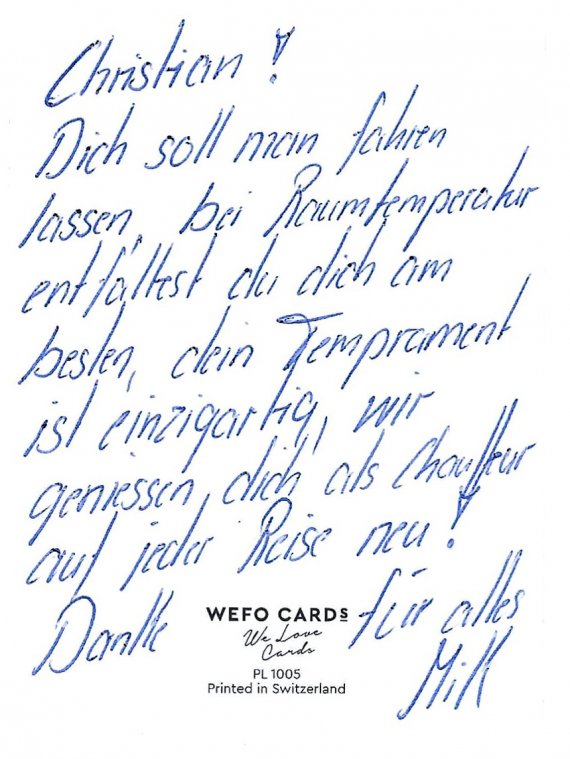 Christian!
Dich soll man fahren
lassen, bei Raumtemperatur
entfaltest du dich am
besten, dein Temprament
ist einzigartig, wir
geniessen, dich als Chauffeur
auf jeder Reise neu!
Danke für alles
WEFO CARDS
We Love
Cards
PL 1005
Printed in Switzerland